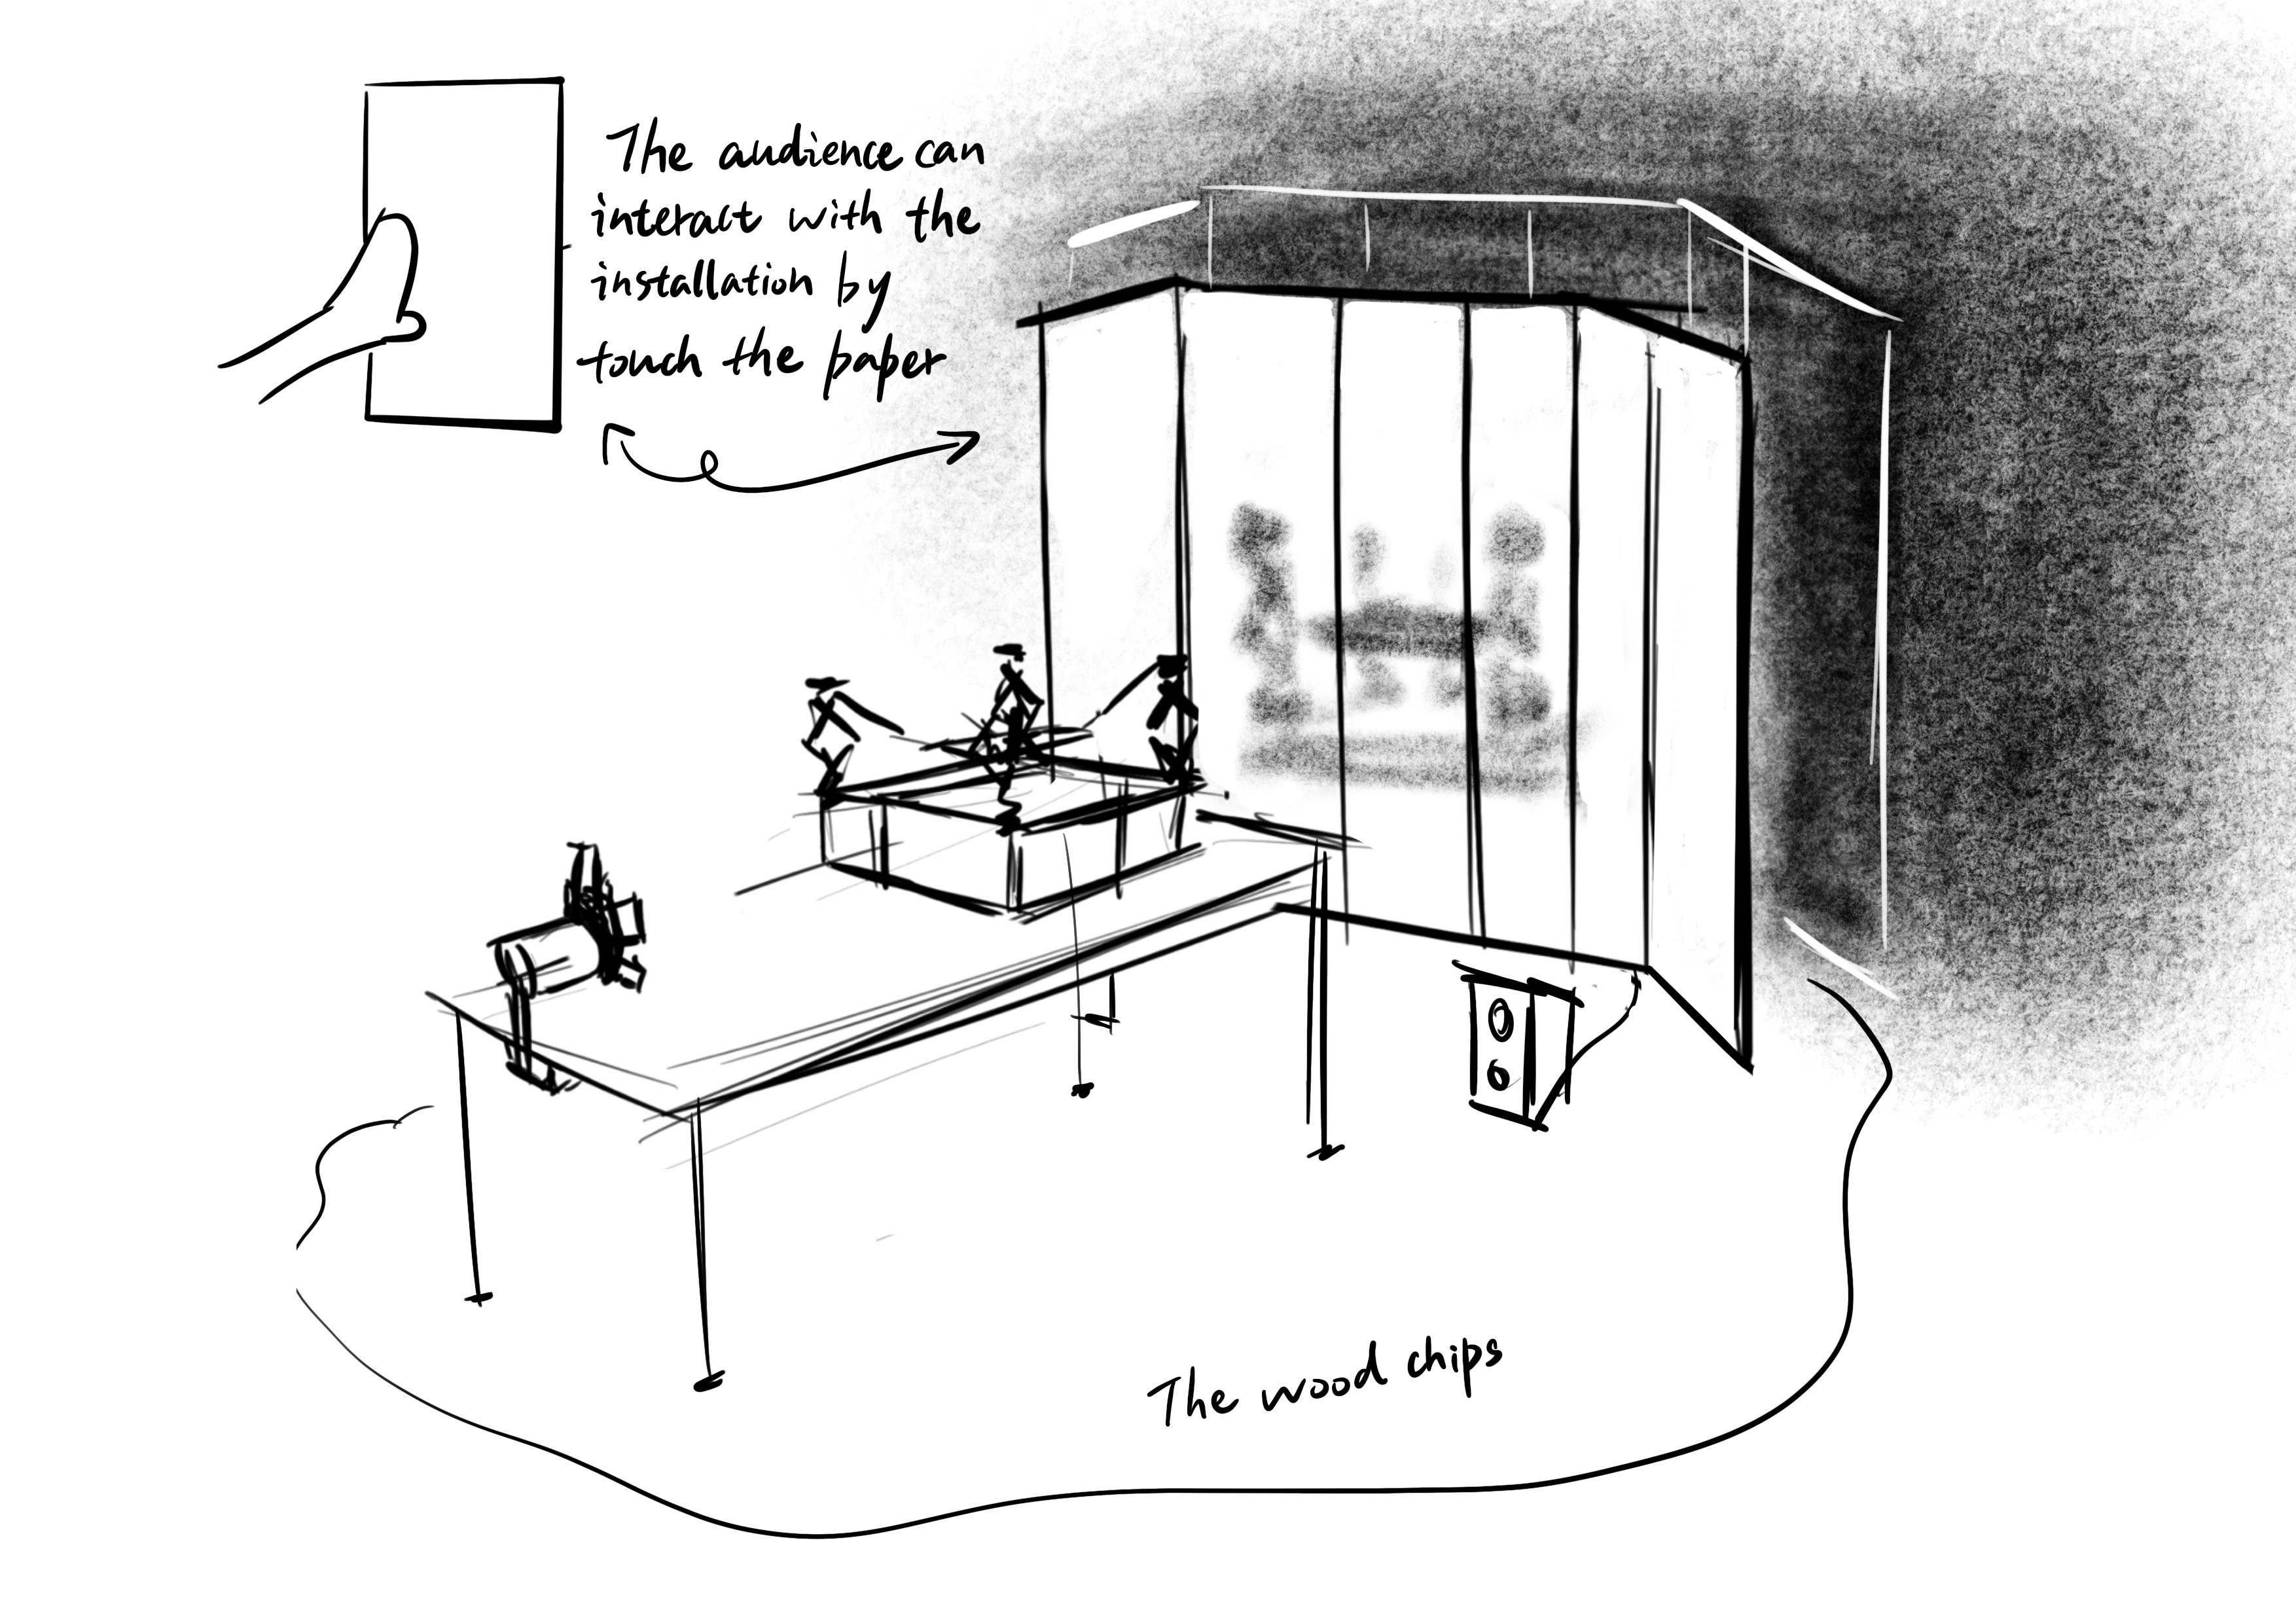 The audience can
interact with the
installation by
touch the paper
The wood chips